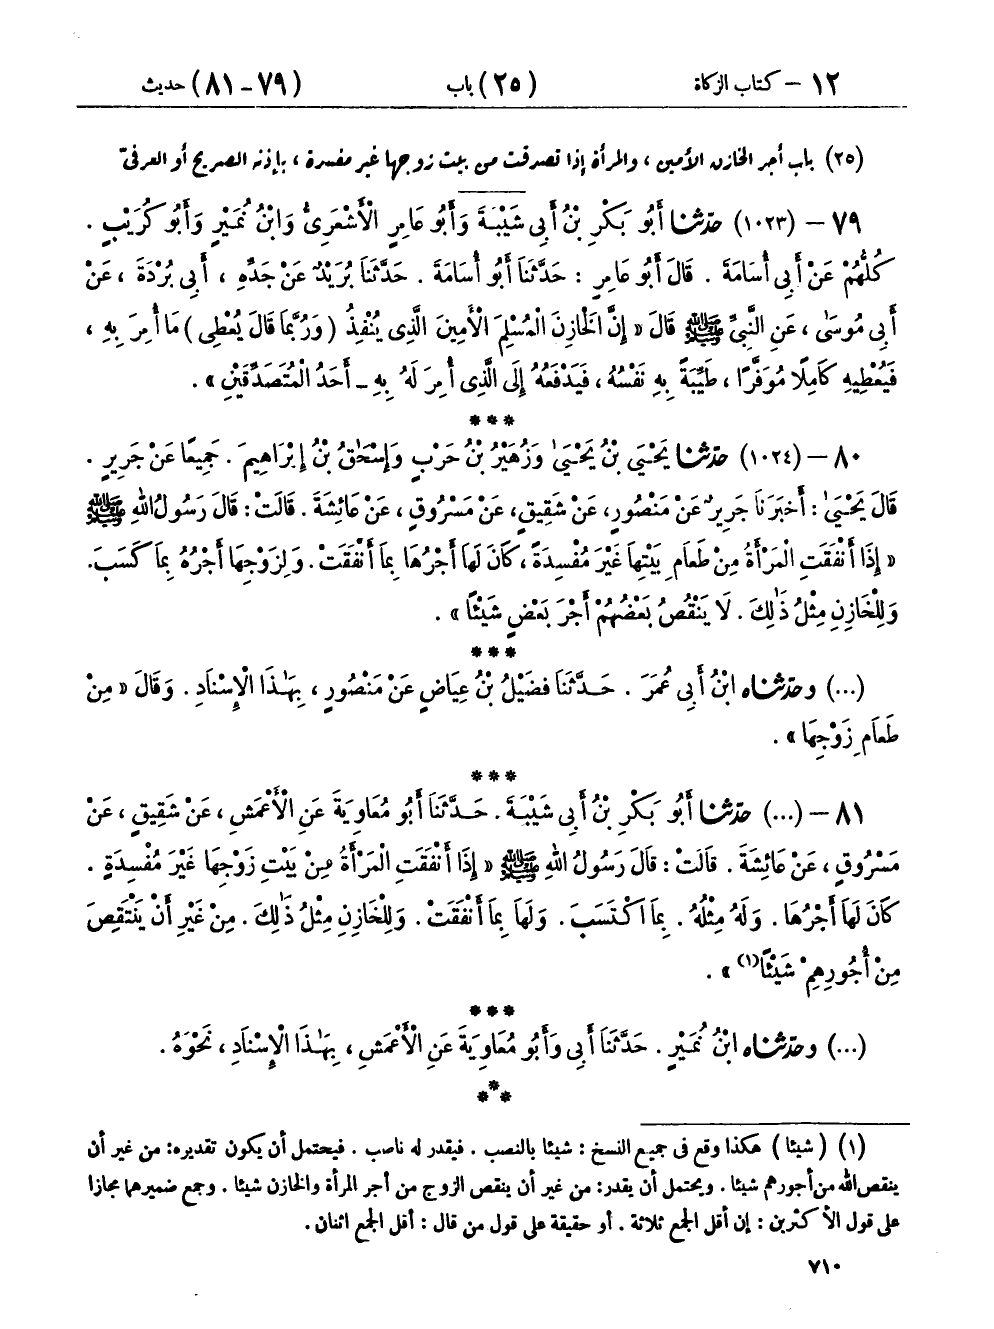 ١٢ – كتاب الزكاة (٢٥) باب (٧٩ – ٨١) حديث
(٢٥) باب أجر الخازن الأمين ، والمرأة إذا تصدقت من بيت زوجها غير مفسدة ، بإذنه الصريح أو العرفىّ
٧٩ – (١٠٢٣) حدّثنا أَبُو بَكْرِ بْنُ أَبِى شَيْبَةَ وَأَبُو عَامِرٍ الْأَشْعَرِىُّ وَابْنُ نُمَيْرٍ وَأَبُو كُرَيْبٍ .
كُلُّهُمْ عَنْ أَبِى أُسَامَةَ . قَالَ أَبُو عَامِرٍ : حَدَّثَنَا أَبُو أُسَامَةَ . حَدَّثَنَا بُرَيْدٌ عَنْ جَدِّهِ ، أَبِى بُرْدَةَ ، عَنْ
أَبِى مُوسَىٰ ، عَنِ النَّبِىِّ ﷺ قَالَ « إِنَّ الْخَازِنَ الْمُسْلِمَ الْأَمِينَ الَّذِى يُنْفِذُ ( وَرُبَّمَا قَالَ يُعْطِى ) مَا أُمِرَ بِهِ ،
فَيُعْطِيهِ كَامِلًا مُوَفَّرًا ، طَيِّبَةً بِهِ نَفْسُهُ ، فَيَدْفَعُهُ إِلَى الَّذِى أُمِرَ لَهُ بِهِ – أَحَدُ الْمُتَصَدِّقَيْنِ » .
***
٨٠ – (١٠٢٤) حدّثنا يَحْيَىٰ بْنُ يَحْيَىٰ وَزُهَيْرُ بْنُ حَرْبٍ وَإِسْحَٰقُ بْنُ إِبْرَاهِيمَ . جَمِيعًا عَنْ جَرِيرٍ .
قَالَ يَحْيَىٰ : أَخْبَرَنَا جَرِيرٌ عَنْ مَنْصُورٍ، عَنْ شَقِيقٍ، عَنْ مَسْرُوقٍ ، عَنْ عَائِشَةَ . قَالَتْ: قَالَ رَسُولُ اللهِ ﷺ
« إِذَا أَنْفَقَتِ الْمَرْأَةُ مِنْ طَعَامِ بَيْتِهَا غَيْرَ مُفْسِدَةٍ ، كَانَ لَهَا أَجْرُهَا بِمَا أَنْفَقَتْ . وَلِزَوْجِهَا أَجْرُهُ بِمَا كَسَبَ.
وَلِلْخَازِنِ مِثْلُ ذَٰلِكَ . لَا يَنْقُصُ بَعْضُهُمْ أَجْرَ بَعْضٍ شَيْئًا » .
***
(...) وحدّثناه ابْنُ أَبِى عُمَرَ . حَدَّثَنَا فُضَيْلُ بْنُ عِيَاضٍ عَنْ مَنْصُورٍ ، بِهَٰذَا الْإِسْنَادِ . وَقَالَ « مِنْ
طَعَامِ زَوْجِهَا » .
***
٨١ – (...) حدّثنا أَبُو بَكْرِ بْنُ أَبِى شَيْبَةَ . حَدَّثَنَا أَبُو مُعَاوِيَةَ عَنِ الْأَعْمَشِ ، عَنْ شَقِيقٍ ، عَنْ
مَسْرُوقٍ ، عَنْ عَائِشَةَ . قَالَتْ : قَالَ رَسُولُ اللهِ ﷺ « إِذَا أَنْفَقَتِ الْمَرْأَةُ مِنْ بَيْتِ زَوْجِهَا غَيْرَ مُفْسِدَةٍ .
كَانَ لَهَا أَجْرُهَا . وَلَهُ مِثْلُهُ . بِمَا اكْتَسَبَ . وَلَهَا بِمَا أَنْفَقَتْ . وَلِلْخَازِنِ مِثْلُ ذَٰلِكَ . مِنْ غَيْرِ أَنْ يَنْتَقِصَ
مِنْ أُجُورِهِمْ شَيْئًا(١) » .
***
(...) وحدّثناه ابْنُ نُمَيْرٍ . حَدَّثَنَا أَبِى وَأَبُو مُعَاوِيَةَ عَنِ الْأَعْمَشِ ، بِهَٰذَا الْإِسْنَادِ ، نَحْوَهُ .
***
(١) ( شيئا ) هكذا وقع فى جميع النسخ : شيئا بالنصب . فيقدر له ناصب . فيحتمل أن يكون تقديره: من غير أن
ينقص الله من أجورهم شيئا . ويحتمل أن يقدر: من غير أن ينقص الزوج من أجر المرأة والخازن شيئا . وجمع ضميرهما مجازا
على قول الأكثرين : إن أقل الجمع ثلاثة . أو حقيقة على قول من قال : أقل الجمع اثنان .
٧١٠